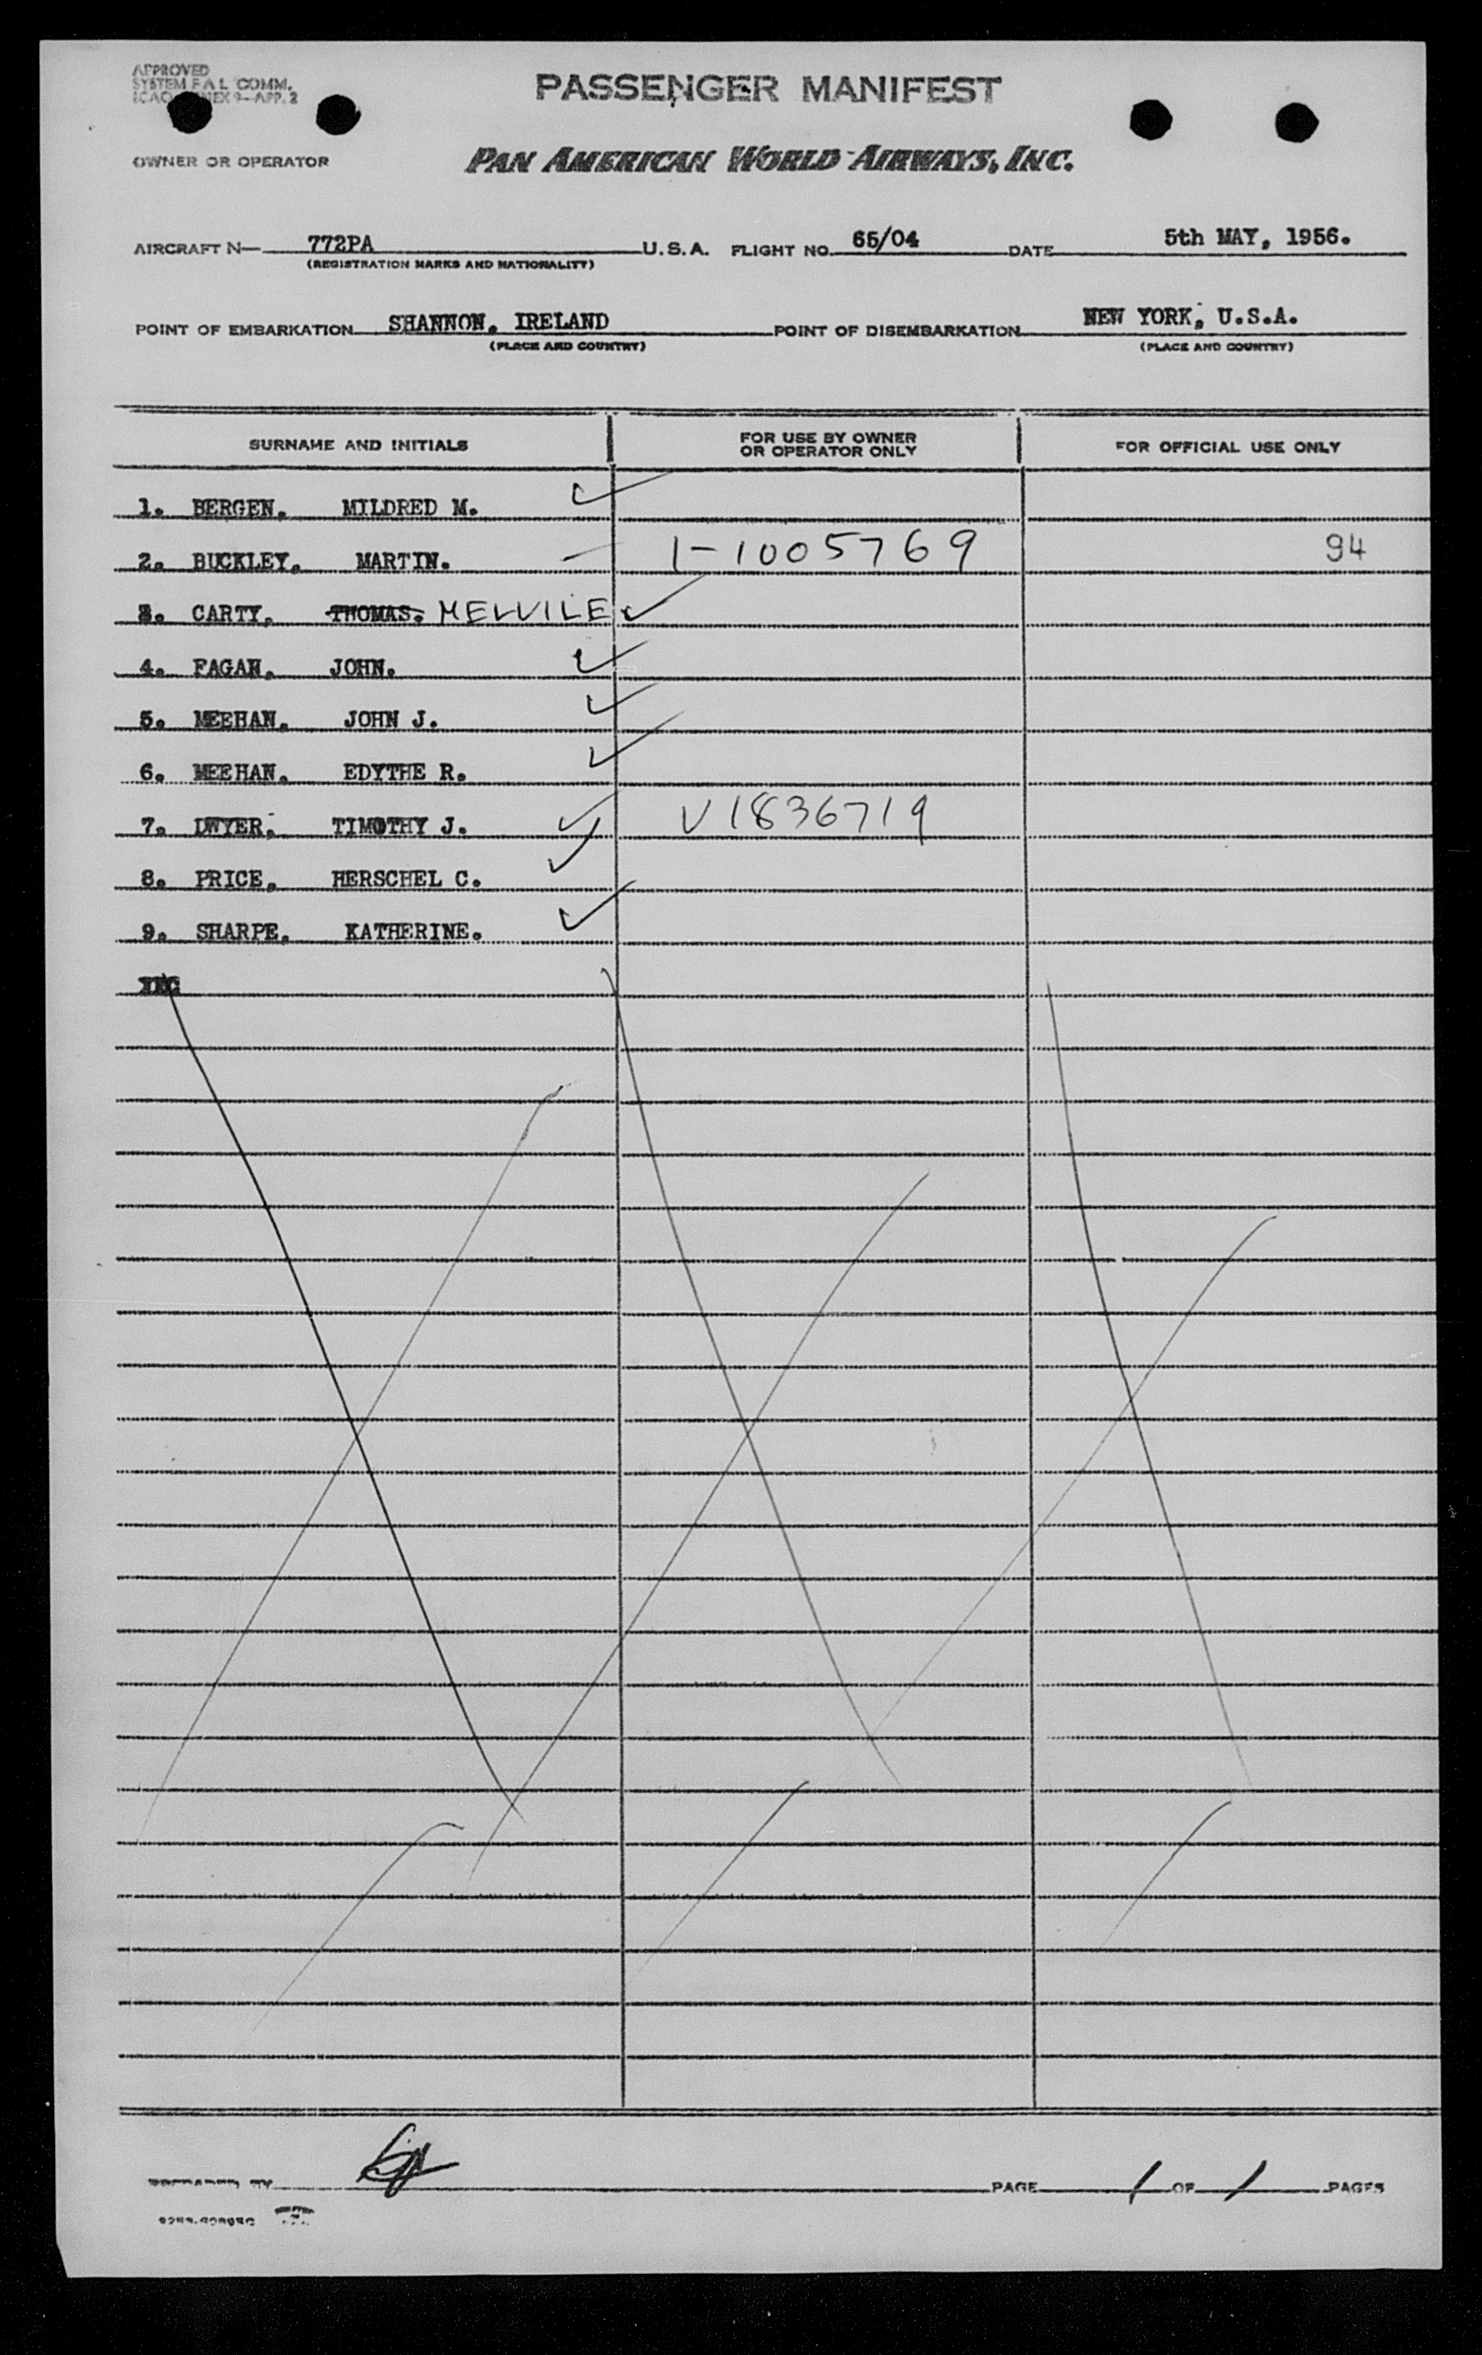 APPROVED
SYSTEM F A L COMM.
ICAO ANNEX 9-APP. 2
PASSENGER MANIFEST
OWNER OR OPERATOR
PAN AMERICAN WORLD AIRWAYS, INC.
AIRCRAFT N— 772PA U.S.A. FLIGHT NO. 65/04 DATE 5th MAY, 1956.
(REGISTRATION MARKS AND NATIONALITY)
POINT OF EMBARKATION SHANNON, IRELAND POINT OF DISEMBARKATION NEW YORK, U.S.A.
(PLACE AND COUNTRY) (PLACE AND COUNTRY)
SURNAME AND INITIALS FOR USE BY OWNER OR OPERATOR ONLY FOR OFFICIAL USE ONLY
1. BERGEN, MILDRED M.
2. BUCKLEY, MARTIN. 1-1005769 94
3. CARTY, THOMAS. MELVILE
4. FAGAN, JOHN.
5. MEEHAN, JOHN J.
6. MEEHAN, EDYTHE R.
7. DWYER, TIMOTHY J. V1836719
8. PRICE, HERSCHEL C.
9. SHARPE, KATHERINE.
PREPARED BY PAGE 1 OF 1 PAGES